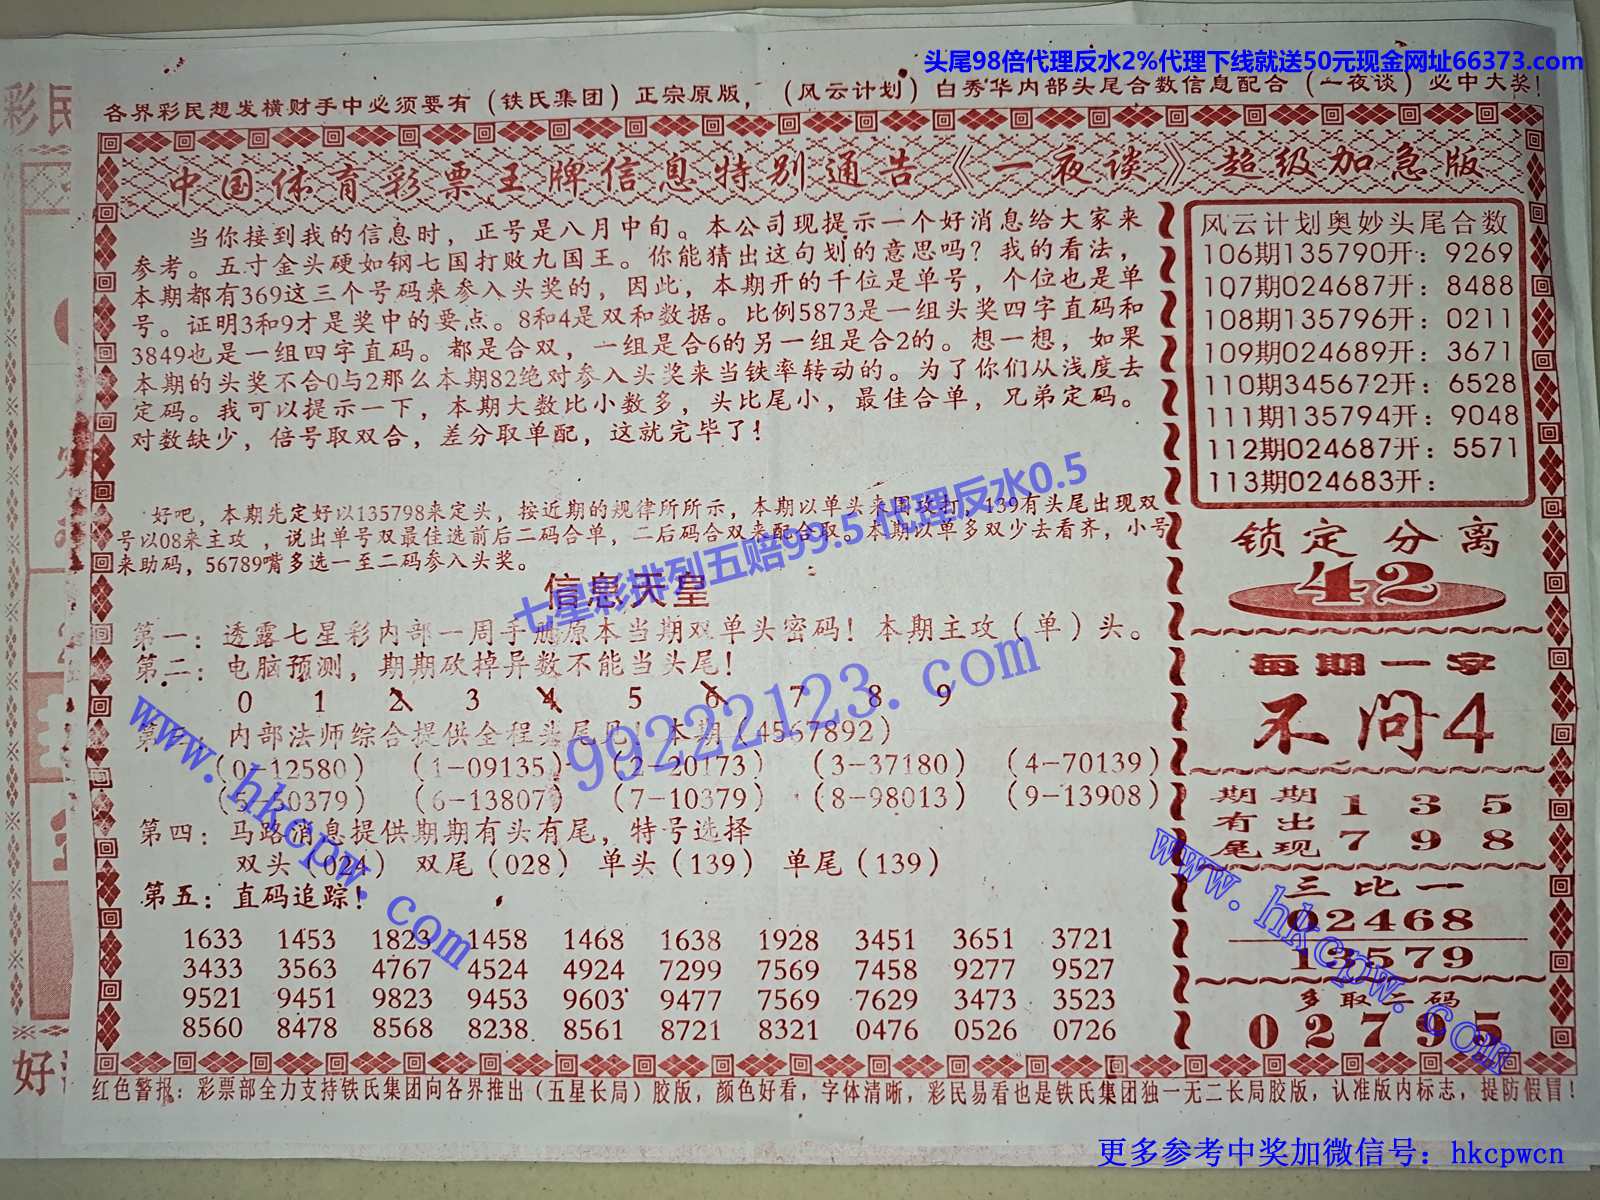 头尾98倍代理反水2%代理下线就送50元现金网址66373.com
各界彩民想发横财手中必须要有（铁氏集团）正宗原版，（风云计划）白秀华内部头尾合数信息配合（一夜谈）必中大奖！
中国体育彩票王牌信息特别通告《一夜谈》超级加急版
当你接到我的信息时，正号是八月中旬。本公司现提示一个好消息给大家来
参考。五寸金头硬如钢七国打败九国王。你能猜出这句划的意思吗？我的看法，
本期都有369这三个号码来参入头奖的，因此，本期开的千位是单号，个位也是单
号。证明3和9才是奖中的要点。8和4是双和数据。比例5873是一组头奖四字直码和
3849也是一组四字直码。都是合双，一组是合6的另一组是合2的。想一想，如果
本期的头奖不合0与2那么本期82绝对参入头奖来当铁率转动的。为了你们从浅度去
定码。我可以提示一下，本期大数比小数多，头比尾小，最佳合单，兄弟定码。
对数缺少，倍号取双合，差分取单配，这就完毕了！
好吧，本期先定好以135798来定头，按近期的规律所所示，本期以单头来围攻打，139有头尾出现双
号以08来主攻 ，说出单号双最佳选前后二码合单，二后码合双来配合取。本期以单多双少去看齐，小号
来助码，56789嘴多选一至二码参入头奖。
七星彩排列五赔99.5代理反水0.5
信息天皇
第一：透露七星彩内部一周手册原本当期双单头密码！本期主攻（单）头。
第二：电脑预测，期期砍掉异数不能当头尾！
0 1 2 3 4 5 6 7 8 9
第三：内部法师综合提供全程头尾见！本期（4567892）
（0-12580） （1-09135） （2-20173） （3-37180） （4-70139）
（5-30379） （6-13807） （7-10379） （8-98013） （9-13908）
第四：马路消息提供期期有头有尾，特号选择
双头（024） 双尾（028） 单头（139） 单尾（139）
第五：直码追踪！
1633 1453 1823 1458 1468 1638 1928 3451 3651 3721
3433 3563 4767 4524 4924 7299 7569 7458 9277 9527
9521 9451 9823 9453 9603 9477 7569 7629 3473 3523
8560 8478 8568 8238 8561 8721 8321 0476 0526 0726
99222123.com
www.hkcpw.com
风云计划奥妙头尾合数
106期135790开：9269
107期024687开：8488
108期135796开：0211
109期024689开：3671
110期345672开：6528
111期135794开：9048
112期024687开：5571
113期024683开：
锁定分离
42
每期一字
不问4
期期 1 3 5
有出
尾现 7 9 8
三比一
02468
13579
多取二码
02795
www.hkcpw.com
红色警报：彩票部全力支持铁氏集团向各界推出（五星长局）胶版，颜色好看，字体清晰，彩民易看也是铁氏集团独一无二长局胶版，认准版内标志，提防假冒！
更多参考中奖加微信号：hkcpwcn
彩民
好